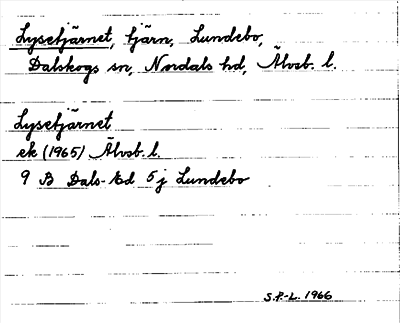 Lysetjärnet, tjärn, Lundebo,
Dalskogs sn, Nordals hd, Älvsb. l.
Lysetjärnet
ek (1965) Älvsb. l.
9 B Dals-Ed 5 j Lundebo
S.P.-L. 1966